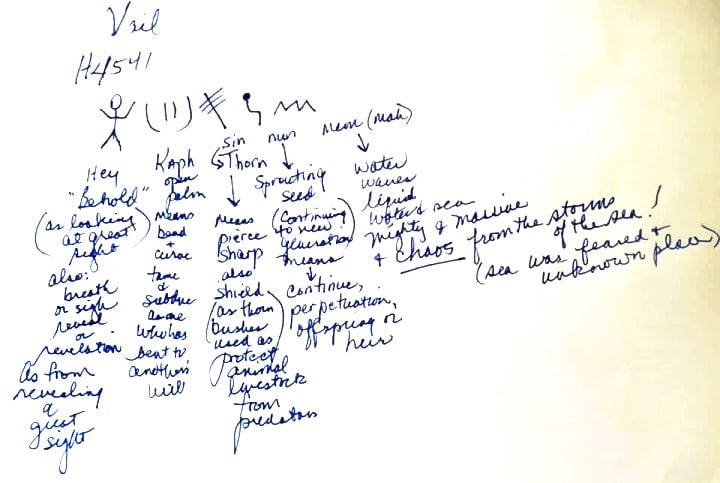 Vril
H4541
Hey
"Behold"
(as looking
at great
sight)
also:
breath
or sigh
reveal
or
revelation
As from
revealing
a
great
sight
Kaph
open
palm
means
bend
&
curve
tame
&
subdue
as one
who has
bent to
another's
will
sin
Thorn
means
pierce
sharp
also
shield
(as thorn
bushes
used as)
protect
animal
livestock
from
predators
nun
Sprouting
seed
(Continuing
to new
generation)
means
continue,
perpetuation,
offspring or
heir
mem (mah)
water
waves
liquid
water & sea
mighty & massive
& chaos from the storms
of the sea!
(sea was feared &
unknown place)